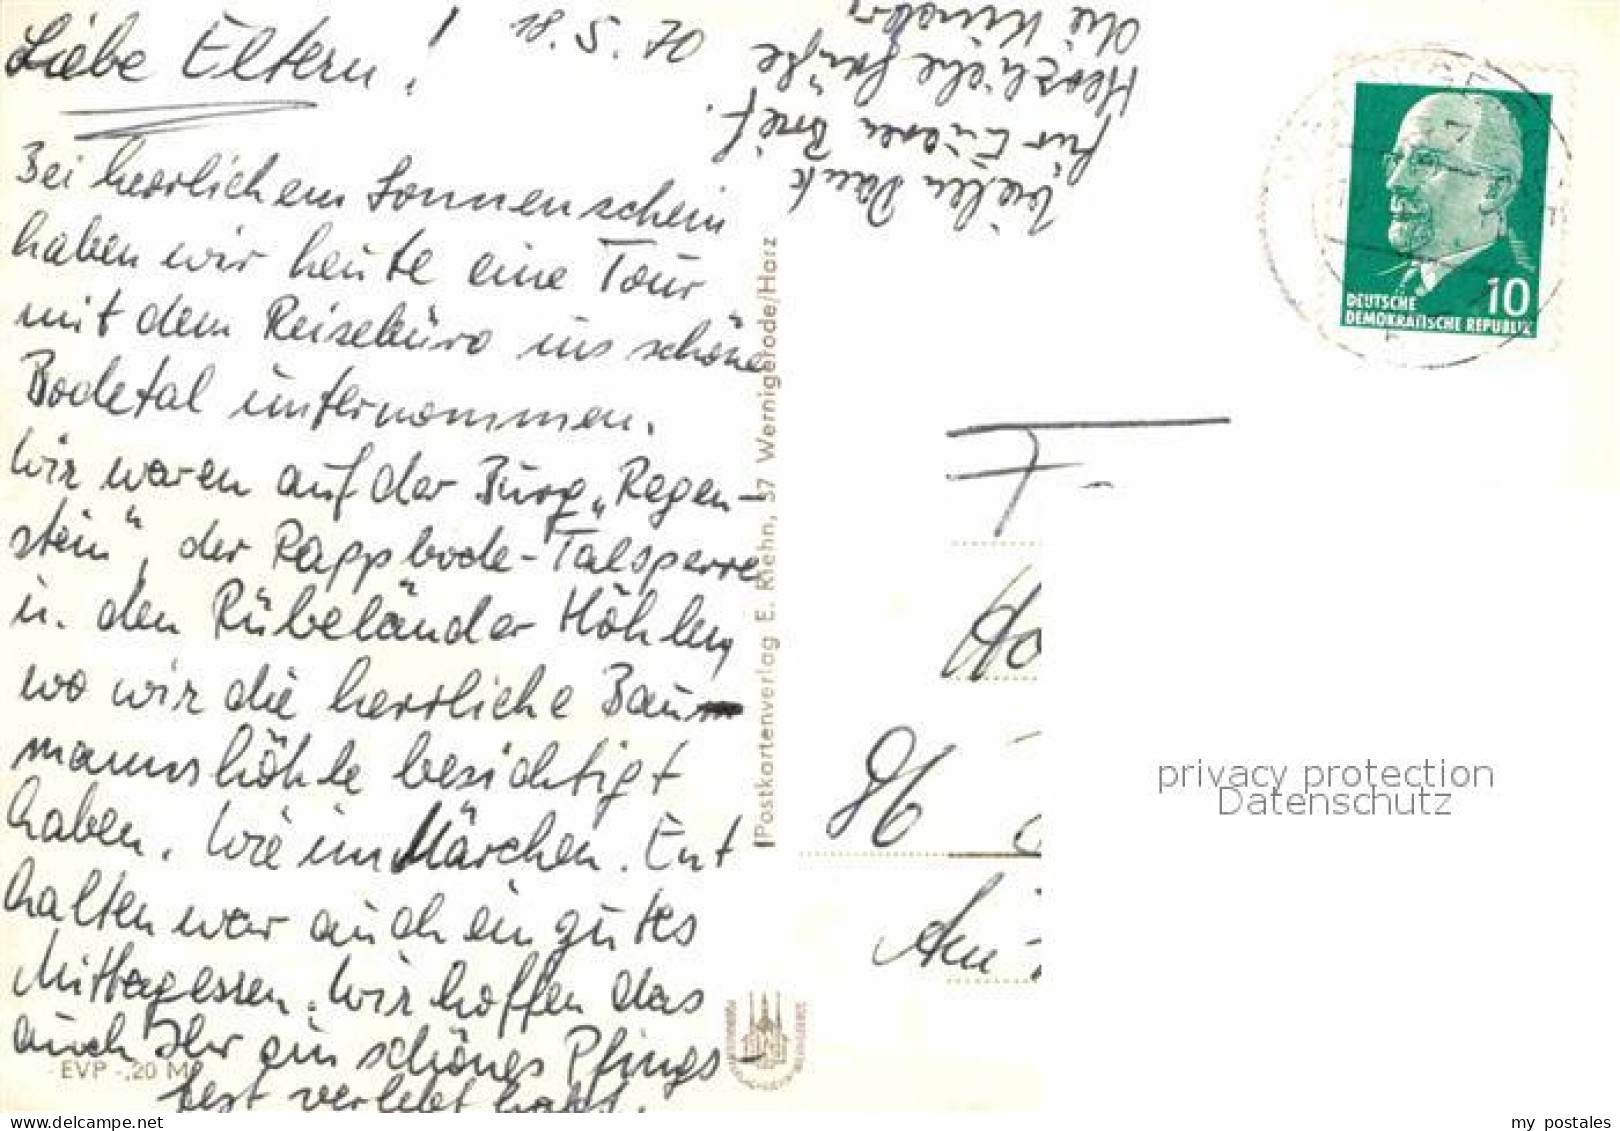 18.5.70
Liebe Eltern!
Bei herrlichem Sonnenschein
haben wir heute eine Tour
mit dem Reisebüro ins schöne
Bodetal unternommen.
Wir waren auf der Burg „Regen-
stein", der Rappbode-Talsperre
u. den Rübeländer Höhlen,
wo wir die herrliche Bau
mannshöhle besichtigt
haben. Wie im Märchen. Ent
halten war auch ein gutes
Mittagessen. Wir hoffen das
auch Ihr ein schönes Pfings-
fest verlebt habt.
Vielen Dank
für Eueren Brief.
Herzliche Grüße
die Kinder
EVP -,20 M
Postkartenverlag E. Riehn, 37 Wernigerode/Harz
10
DEUTSCHE
DEMOKRATISCHE REPUBLIK
F
Ho
86
Am
privacy protection
Datenschutz
my postales